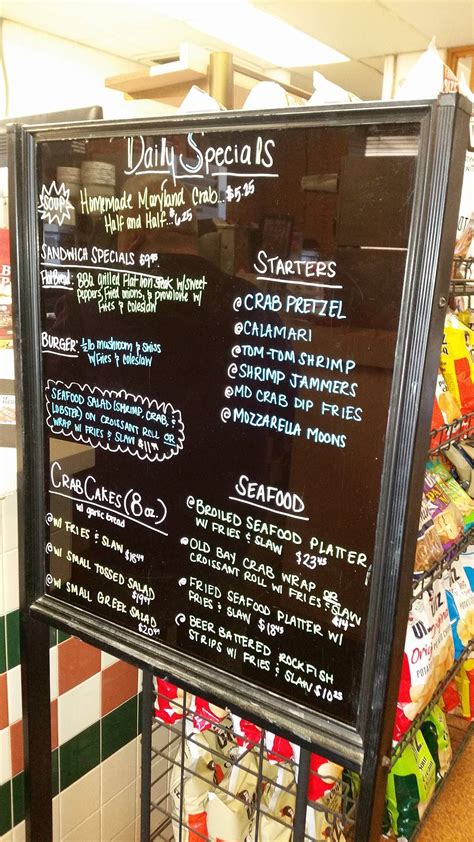 Daily Specials
SOUP Homemade Maryland Crab...$5.25
Half and Half...$6.25
SANDWICH SPECIALS $9.95
Flatbread: BBQ Grilled Flat Iron Steak w/ sweet
Peppers, Fried onions, & provolone w/
Fries & coleslaw
BURGER: 1/2 lb mushroom & swiss
w/ Fries & coleslaw
SEAFOOD SALAD (SHRIMP, CRAB, &
LOBSTER) ON CROISSANT ROLL OR
WRAP W/ FRIES & SLAW
CRAB CAKES (8 oz.)
w/ garlic bread
@ W/ FRIES & SLAW
@ W/ SMALL TOSSED SALAD
@ W/ SMALL GREEK SALAD
STARTERS
@ CRAB PRETZEL
@ CALAMARI
@ TOM-TOM SHRIMP
@ SHRIMP JAMMERS
@ MD CRAB DIP FRIES
@ MOZZARELLA MOONS
SEAFOOD
@ BROILED SEAFOOD PLATTER
W/ FRIES & SLAW $23.95
@ OLD BAY CRAB WRAP OR
CROISSANT ROLL W/ FRIES & SLAW
@ FRIED SEAFOOD PLATTER W/
FRIES & SLAW $18.95
@ BEER BATTERED ROCKFISH
STRIPS W/ FRIES & SLAW $10.25
UTZ
Original